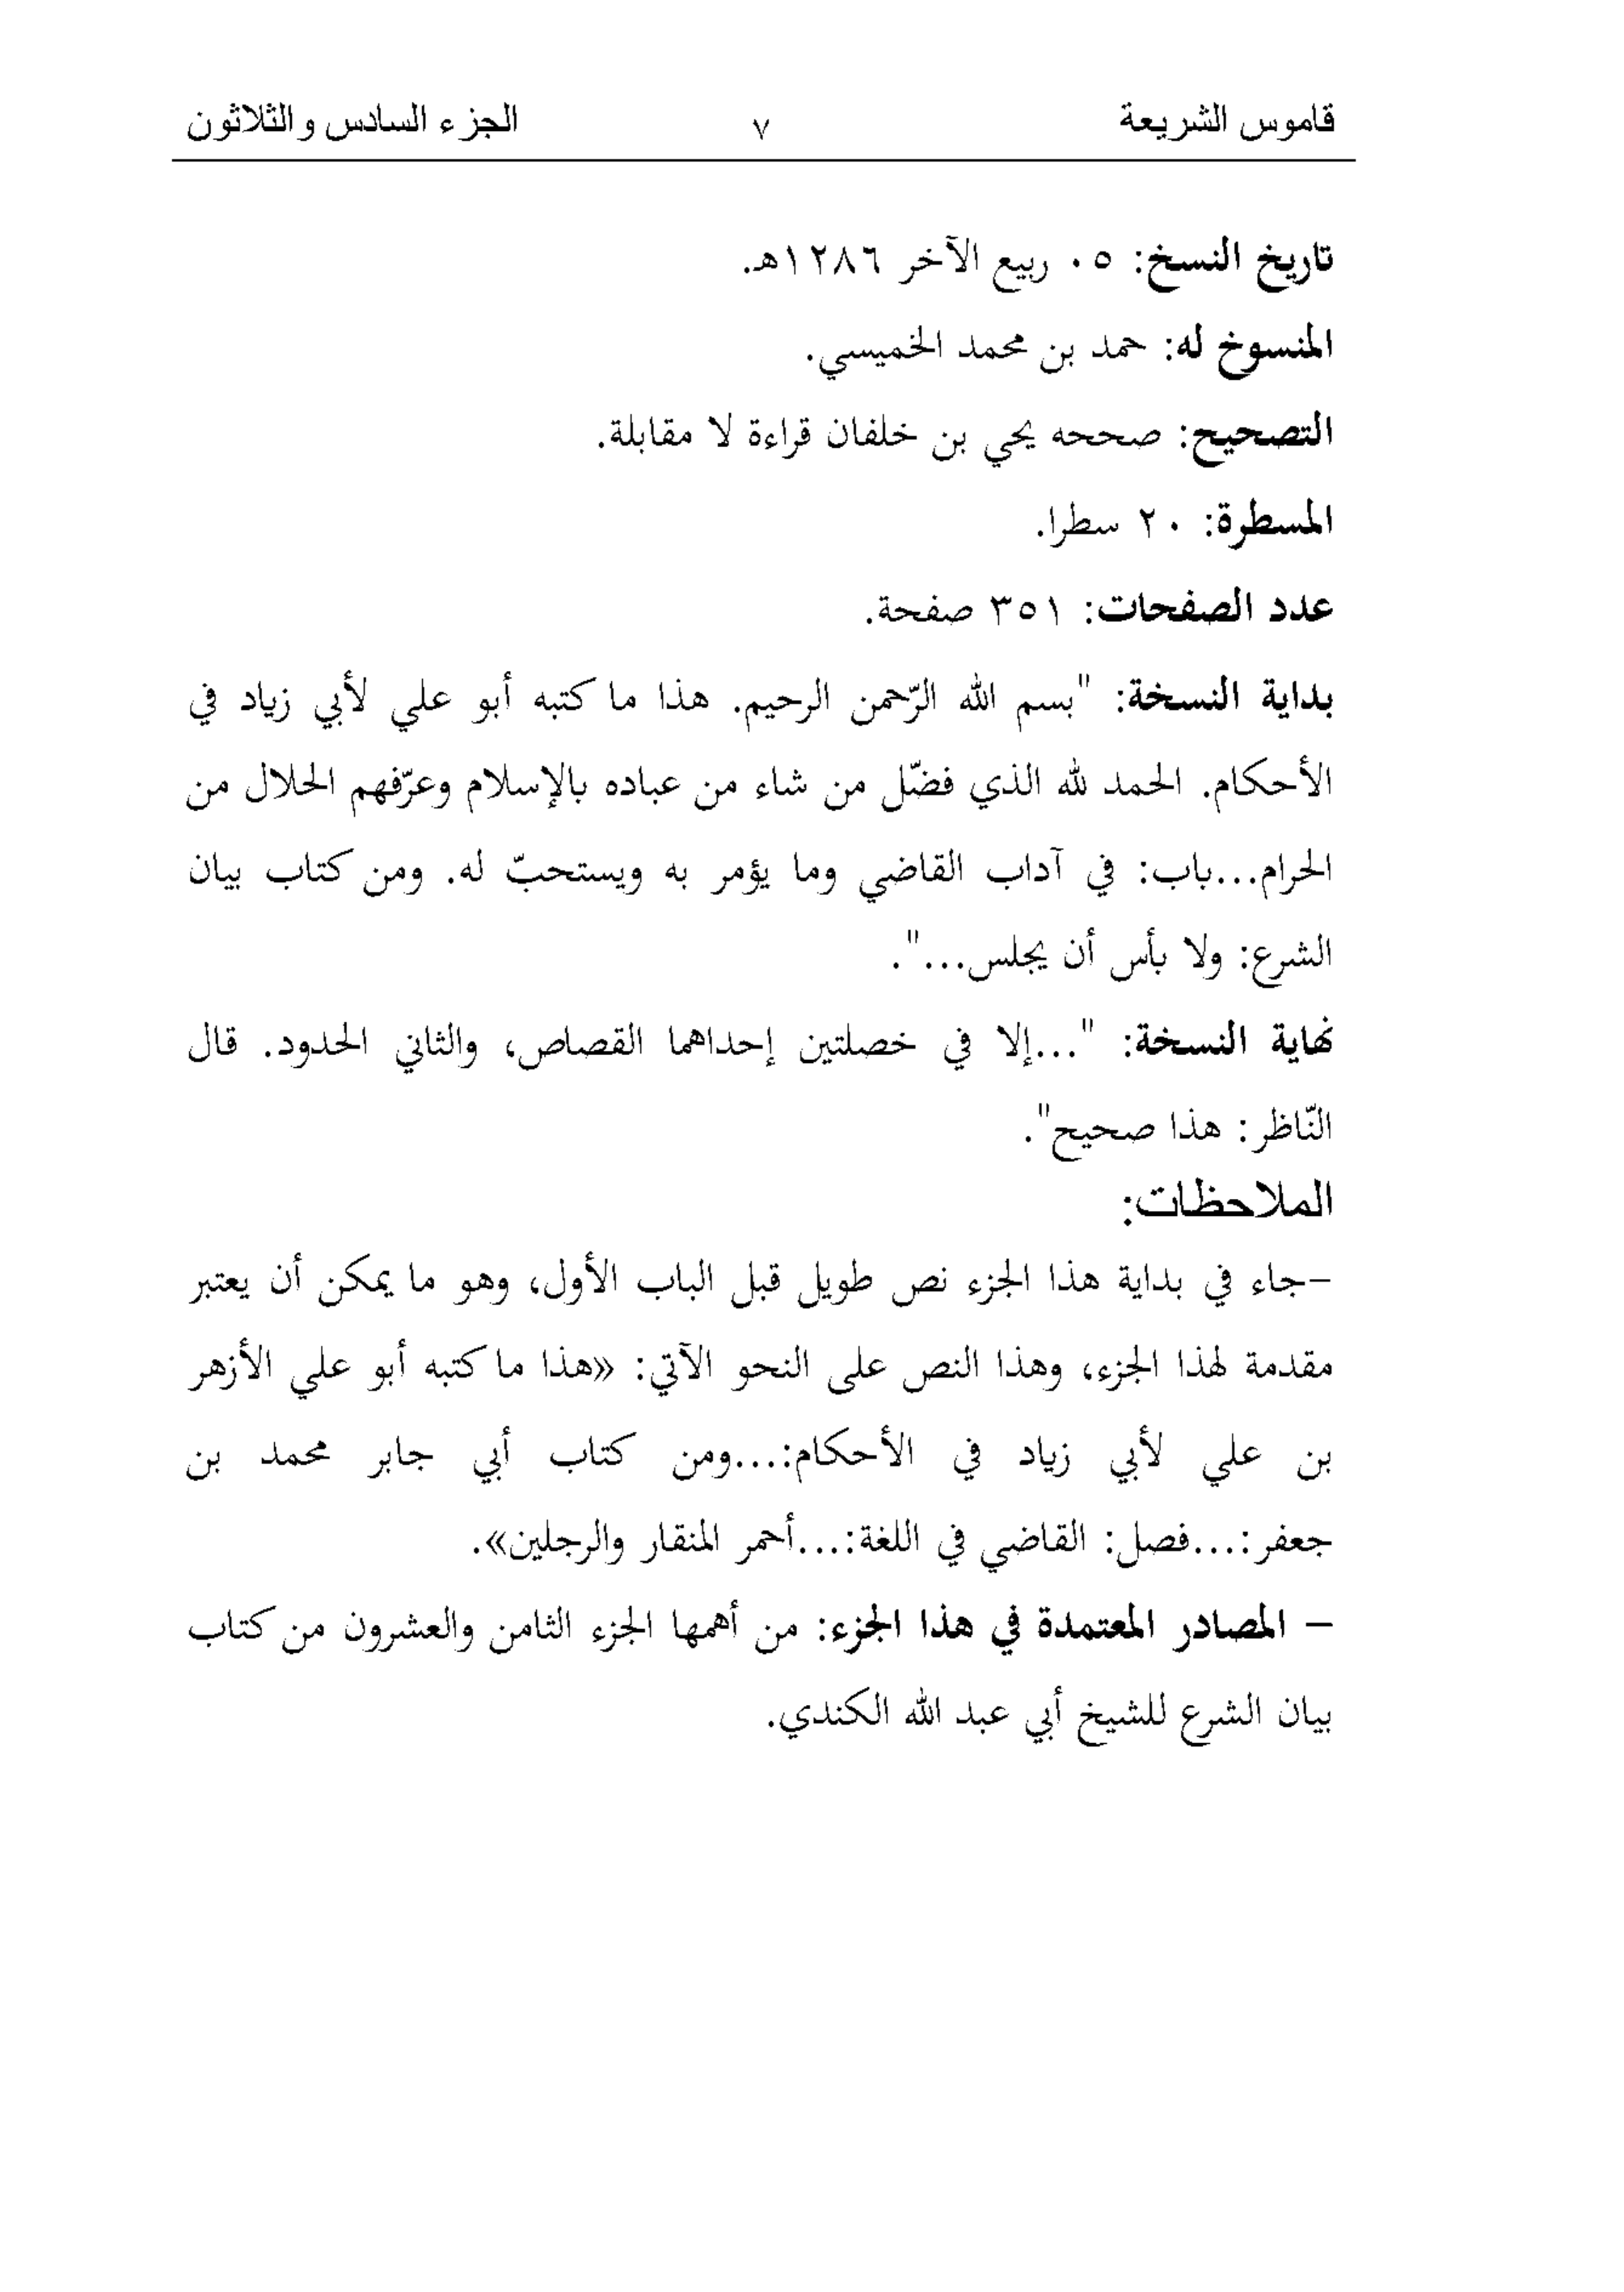 قاموس الشريعة ٧ الجزء السادس والثلاثون
تاريخ النسخ: ٠٥ ربيع الآخر ١٢٨٦هـ.
المنسوخ له: حمد بن محمد الخميسي.
التصحيح: صححه يحي بن خلفان قراءة لا مقابلة.
المسطرة: ٢٠ سطرا.
عدد الصفحات: ٣٥١ صفحة.
بداية النسخة: "بسم الله الرّحمن الرحيم. هذا ما كتبه أبو علي لأبي زياد في
الأحكام. الحمد لله الذي فضّل من شاء من عباده بالإسلام وعرّفهم الحلال من
الحرام...باب: في آداب القاضي وما يؤمر به ويستحبّ له. ومن كتاب بيان
الشرع: ولا بأس أن يجلس...".
نهاية النسخة: "...إلا في خصلتين إحداهما القصاص، والثاني الحدود. قال
النّاظر: هذا صحيح".
الملاحظات:
-جاء في بداية هذا الجزء نص طويل قبل الباب الأول، وهو ما يمكن أن يعتبر
مقدمة لهذا الجزء، وهذا النص على النحو الآتي: «هذا ما كتبه أبو علي الأزهر
بن علي لأبي زياد في الأحكام:...ومن كتاب أبي جابر محمد بن
جعفر:...فصل: القاضي في اللغة:...أحمر المنقار والرجلين».
- المصادر المعتمدة في هذا الجزء: من أهمها الجزء الثامن والعشرون من كتاب
بيان الشرع للشيخ أبي عبد الله الكندي.